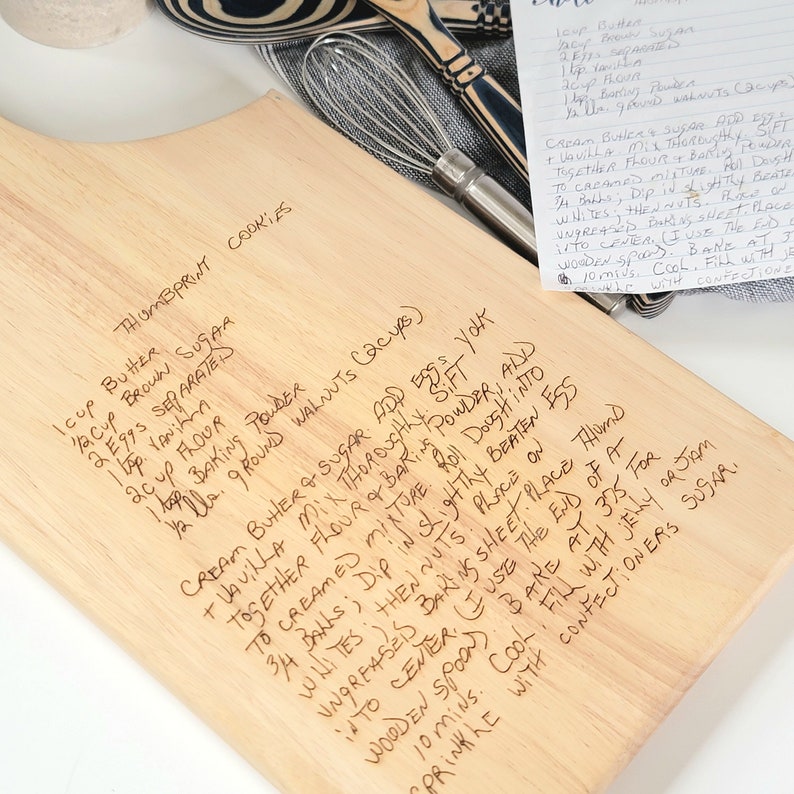 THUMBPRINT COOKIES
1 CUP BUTTER
1/2 CUP BROWN SUGAR
2 EGGS SEPARATED
1 tsp VANILLA
2 CUP FLOUR
1 tsp. BAKING POWDER
1/2 lb. GROUND WALNUTS (2 CUPS)
CREAM BUTTER & SUGAR ADD EGGS YOLK
+ VANILLA MIX THOROUGHLY. SIFT
TOGETHER FLOUR & BAKING POWDER; ADD
TO CREAMED MIXTURE ROLL DOUGH INTO
3/4 BALLS; DIP IN SLIGHTLY BEATEN EGG
WHITES; THEN NUTS PLACE ON
UNGREASED BAKING SHEET. PLACE THUMB
INTO CENTER. (I USE THE END OF A
WOODEN SPOON). BAKE AT 375 FOR
10 MINS. COOL, FILL WITH JELLY OR JAM
SPRINKLE WITH CONFECTIONERS SUGAR.
1 CUP BUTTER
1/2 CUP BROWN SUGAR
2 EGGS SEPARATED
1 tsp VANILLA
2 CUP FLOUR
1 tsp. BAKING POWDER
1/2 lb. GROUND WALNUTS (2 CUPS)
CREAM BUTTER & SUGAR ADD EGGS
+ VANILLA MIX THOROUGHLY. SIFT
TOGETHER FLOUR & BAKING POWDER
TO CREAMED MIXTURE. ROLL DOUGH
3/4 BALLS; DIP IN SLIGHTLY BEATEN
WHITES; THEN NUTS PLACE ON
UNGREASED BAKING SHEET. PLACE
INTO CENTER. (I USE THE END O
WOODEN SPOON). BAKE AT 3
10 MINS. COOL, FILL WITH JE
SPRINKLE WITH CONFECTIONE